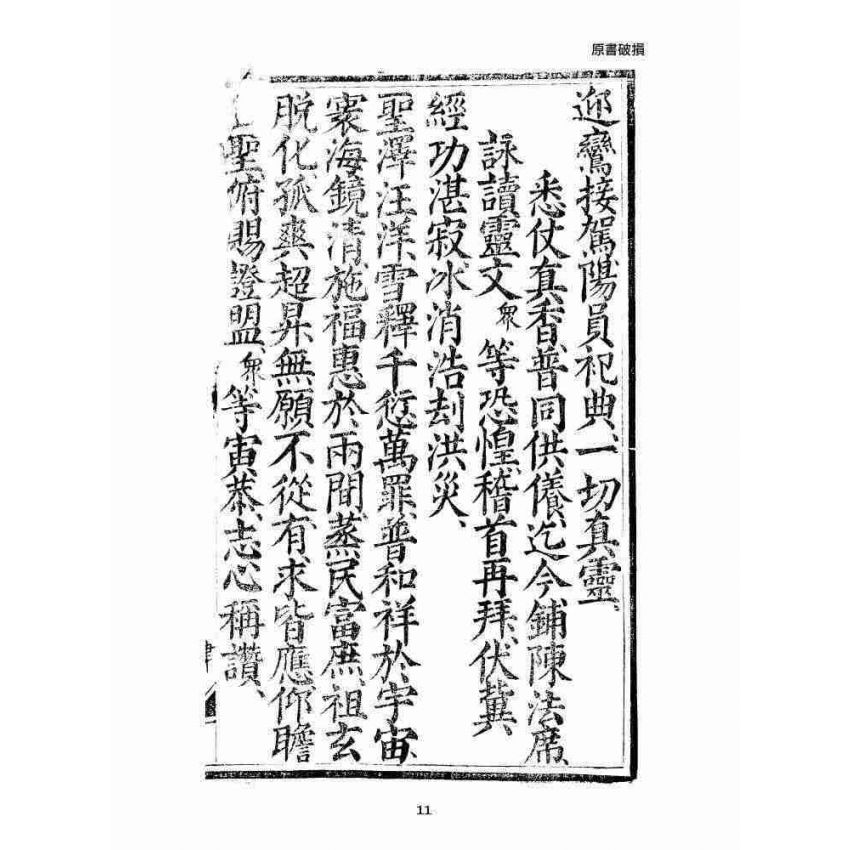 原書破損
迎鸞接駕陽員祀典、一切真靈、
悉仗真香普同供養、迄今鋪陳法席、
詠讀靈文、衆等恐惶、稽首再拜、伏冀
經功湛寂、冰消浩刼洪災、
聖澤汪洋、雪釋千愆萬罪、普和祥於宇宙、
寰海鏡清、施福惠於兩間、蒸民富庶、祖玄
脱化、孤爽超昇、無願不從、有求皆應、仰瞻
聖、俯賜證盟、衆等寅恭、志心稱讚、
11